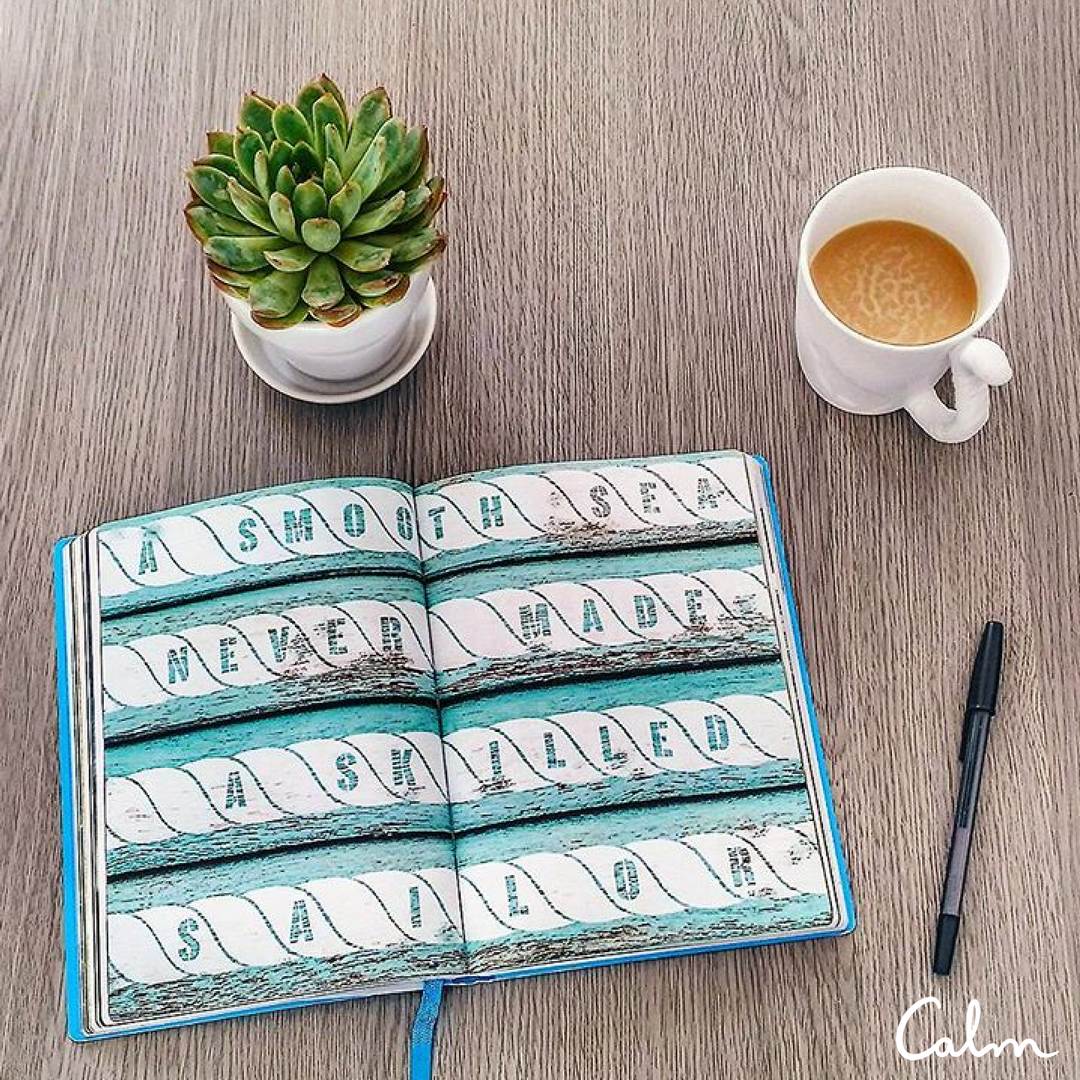 A SMOOTH SEA
NEVER MADE
A SKILLED
SAILOR
Calm